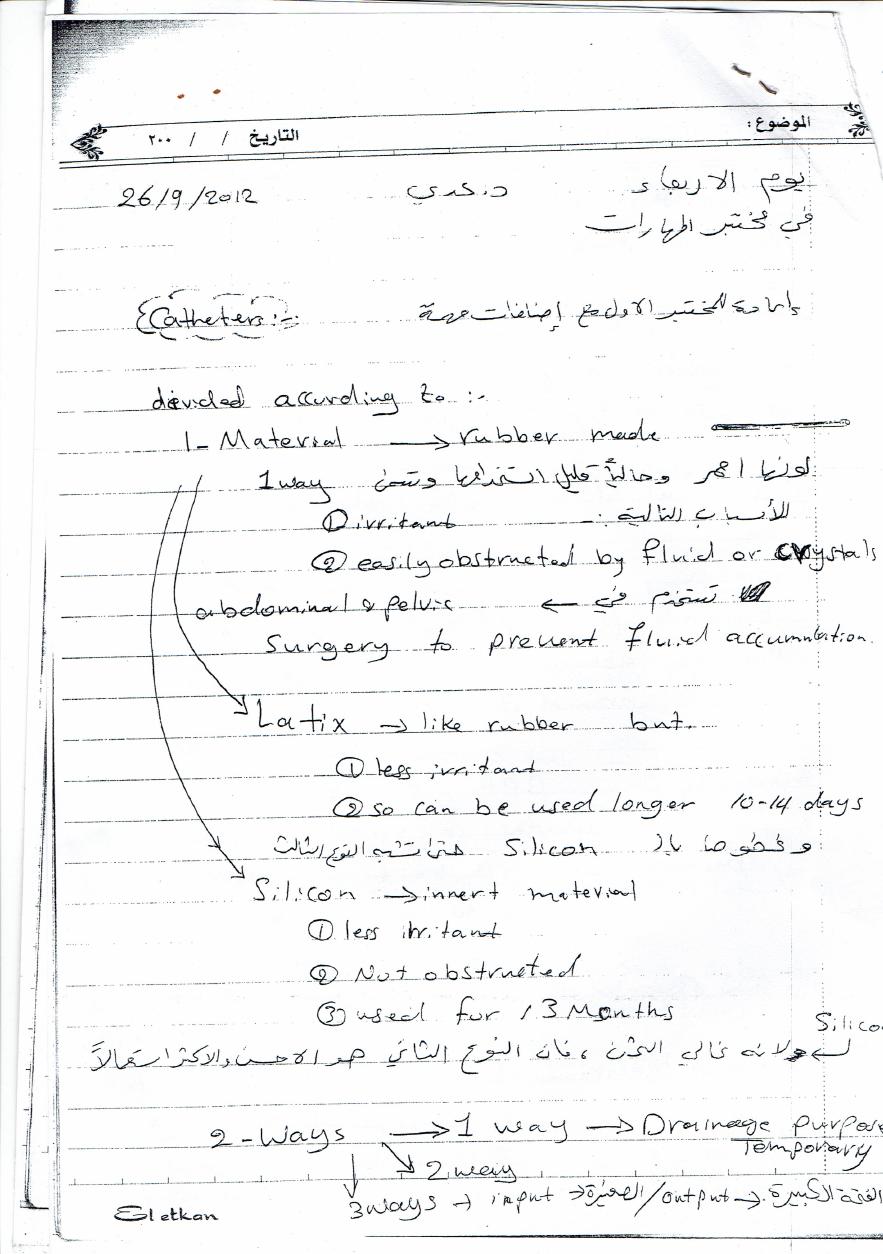 الموضوع:
التاريخ / / ٢٠٠
يوم الاربعاء د. عدي 26/9/2012
في مختبر المهارات
إعادة للمختبر الاول مع إضافات مهمة
Catheters:-
devided accurding to :-
1- Material → rubber made
لونها احمر وحالياً قليل استخدامها 1 way
للأسباب التالية :-
① irritant
② easily obstructed by fluid or crystals
تستخدم في ← abdominal & pelvic
Surgery to prevent fluid accumulation.
Latix → like rubber but.
① less irritant
② so can be used longer 10-14 days
بال Silicon حتى تشبه النوع الثالث
Silicon → innert material
① less irritant
② Not obstructed
③ used for / 3 Months
Silico
ولانه غالي الثمن ، فان النوع الثاني هو الاحسن والاكثر استعمالاً
2-Ways → 1 way → Drainage purpose
Temporary
2 way
3 ways → input → الصغيرة / output → الفتحة الكبيرة
Eletkan